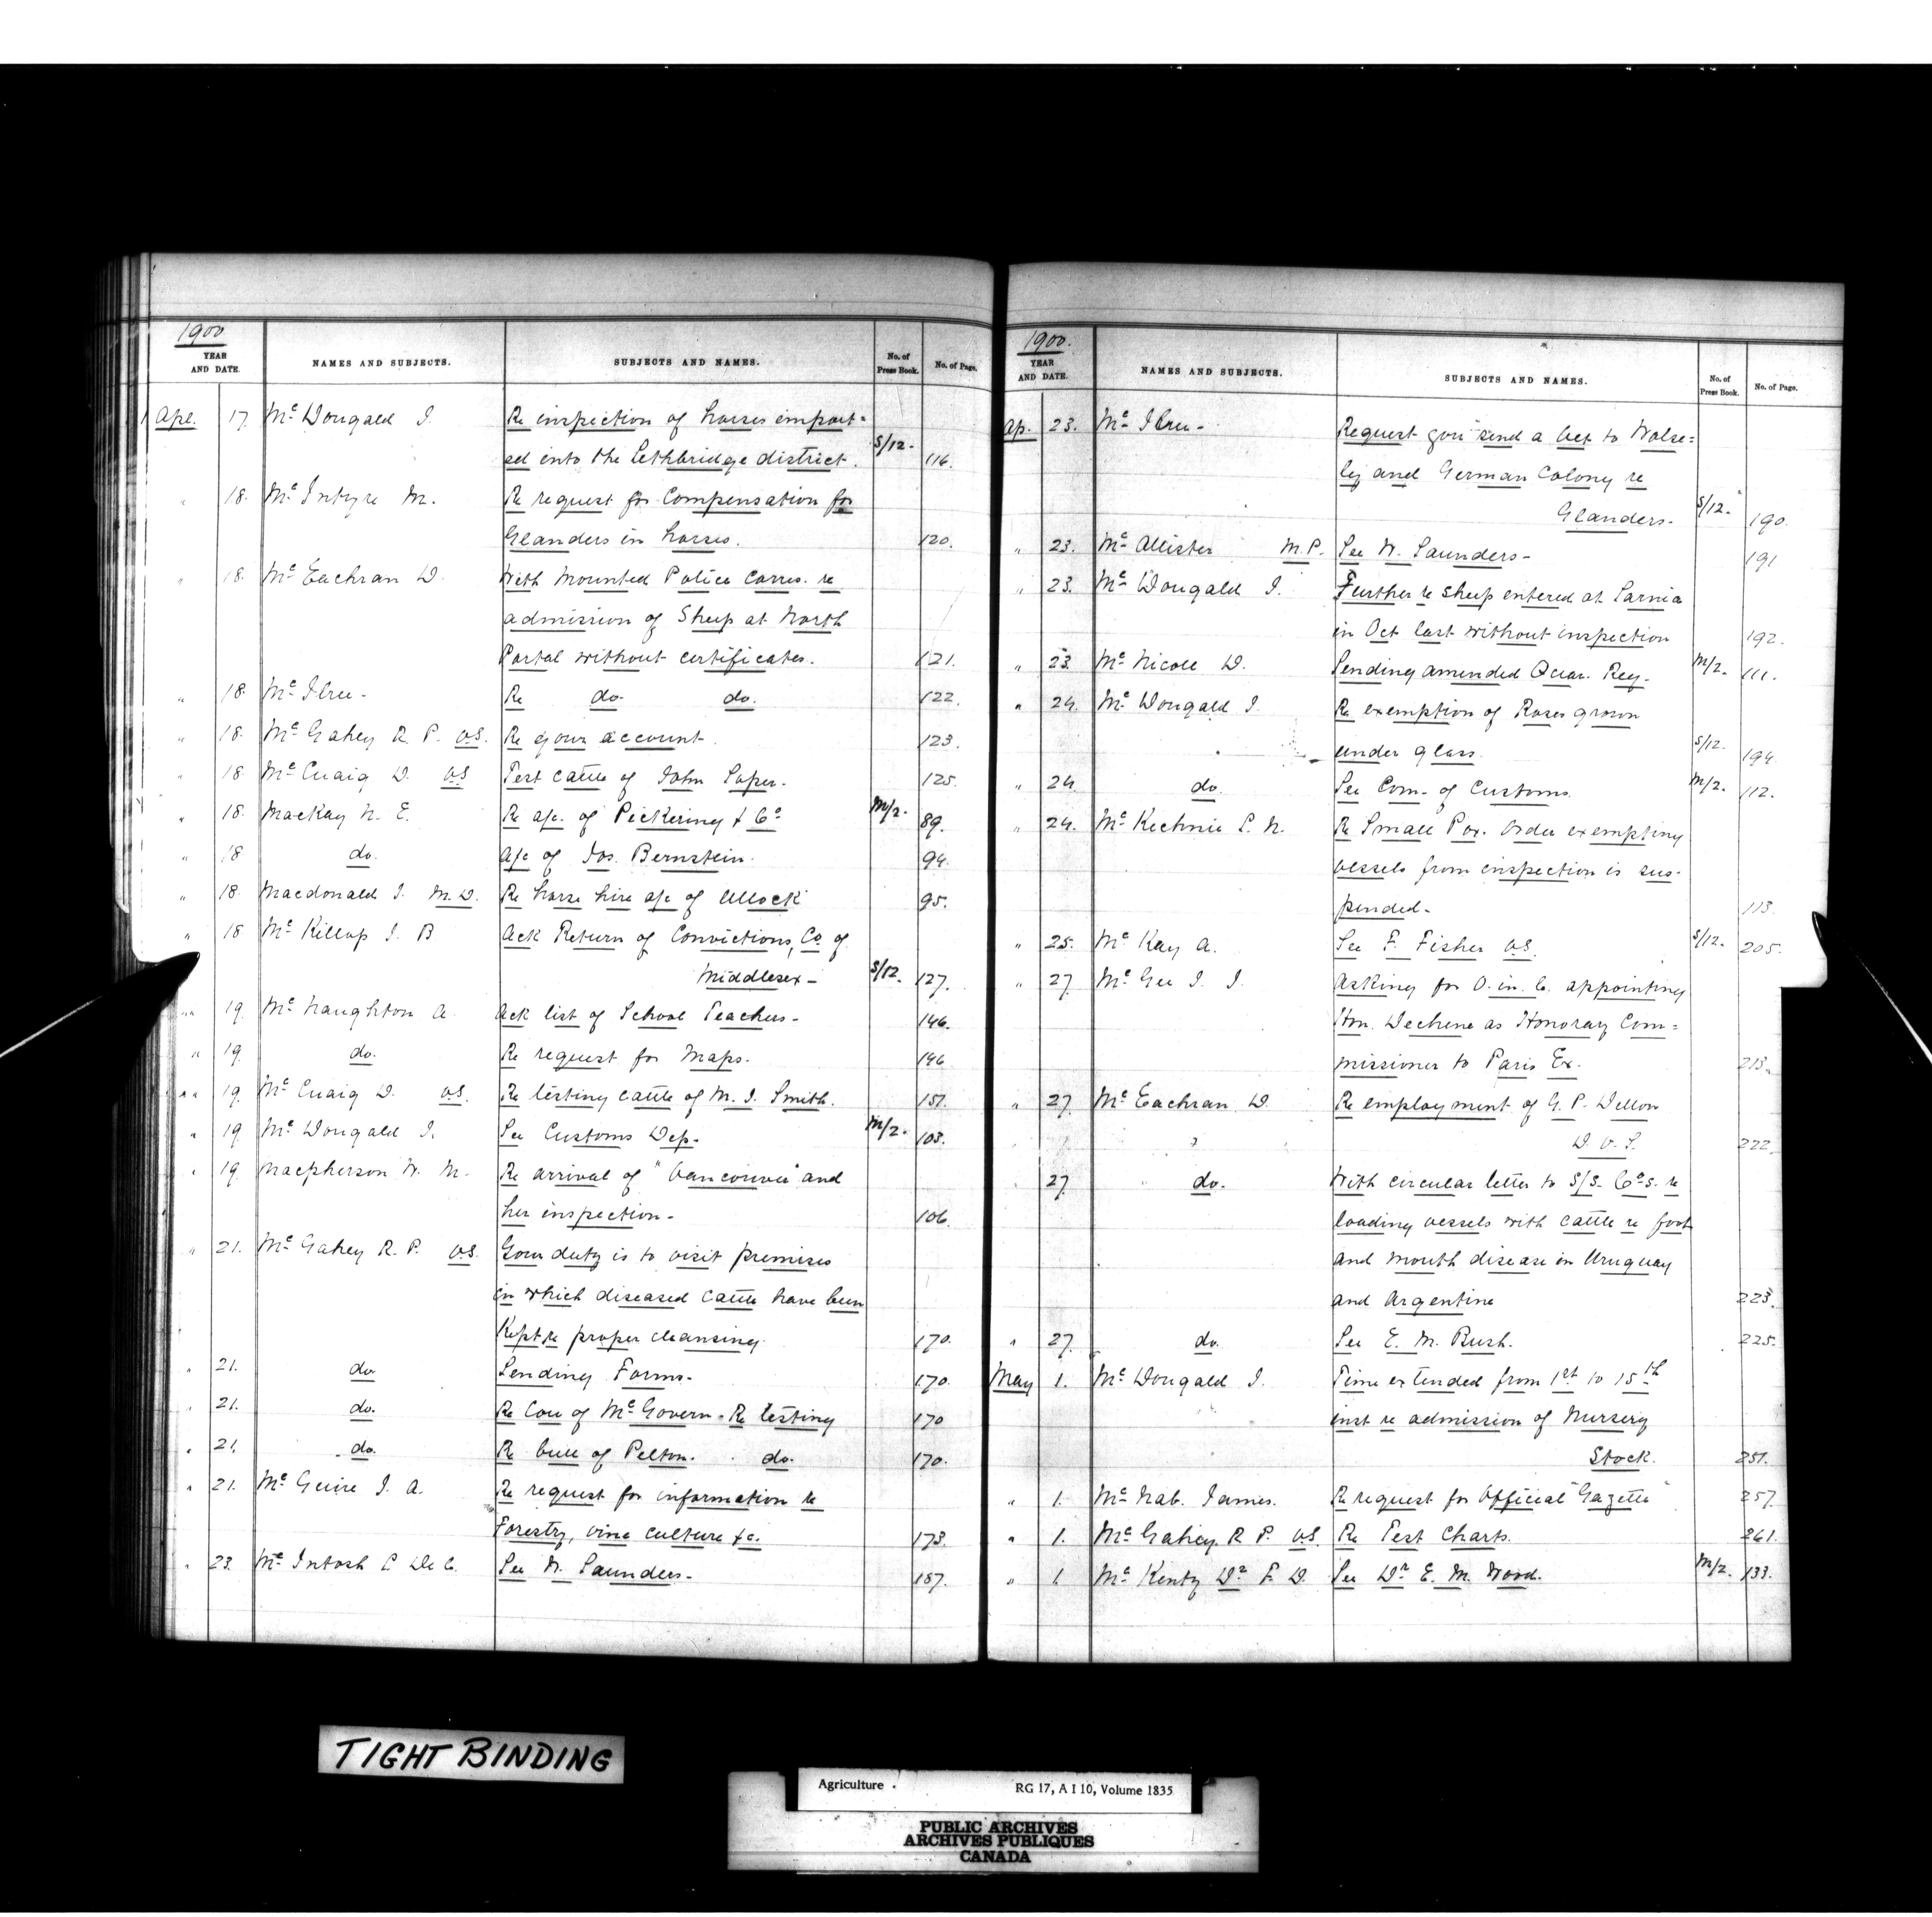 1900
YEAR AND DATE. NAMES AND SUBJECTS. SUBJECTS AND NAMES. No. of Press Book. No. of Page.
Apl. 17. Mc Dougald J. Re inspection of horses import=
ed into the Lethbridge district. S/12. 116.
" 18. Mc Intyre M. Re request for Compensation for
Glanders in horses. 120.
" 18. Mc Eachran D. With Mounted Police Corres. re
admission of Sheep at North
Portal without certificates. 121.
" 18. Mc Ilree - Re do. do. 122.
" 18. Mc Gahey R. P. V.S. Re your account. 123.
" 18. Mc Cuaig D. V.S. Test cattle of John Soper. 125.
" 18. MacKay N. E. Re a/c. of Pickering & Co M/2. 89.
" 18 do. A/c of Jos. Bernstein. 94.
" 18. Macdonald J. M.D. Re horse hire a/c of Ullock 95.
" 18 Mc Killop J. B Ack Return of Convictions, Co. of
Middlesex - S/12. 127.
" 19. Mc Naughton A. Ack list of School Teachers - 146.
" 19. do. Re request for Maps. 146
" 19. Mc Cuaig D. V.S. Re testing cattle of M. J. Smith. 157.
" 19 Mc Dougald J. See Customs Dep. M/2. 103.
" 19 Macpherson W. M. Re arrival of "Vancouver" and
her inspection - 106
" 21. Mc Gahey R. P. V.S. Your duty is to visit premises
in which diseased cattle have been
Kept re proper cleansing. 170.
" 21. do. Sending Forms. 170.
" 21. do. Re Cow of Mc Govern. Re testing 170
" 21. do. Re bull of Pelton. do. 170.
" 21. Mc Guire J. A. Re request for information re
Forestry, vine culture &c. 173.
" 23. Mc Intosh C De C. See W. Saunders - 187.
1900.
YEAR AND DATE. NAMES AND SUBJECTS. SUBJECTS AND NAMES. No. of Press Book. No. of Page.
Ap. 23. Mc Ilree - Request you send a Vet to Wolse=
ley and German Colony re
Glanders. S/12. 190.
" 23. Mc Allister M.P. See W. Saunders - 191
" 23. Mc Dougald J. Further re sheep entered at Sarnia
in Oct last without inspection 192.
" 23 Mc Nicoll D. Sending amended Quar. Reg. M/2. 111.
" 24. Mc Dougald J. Re exemption of Roses grown
under glass. S/12. 194
" 24 do. See Com. of Customs. M/2. 112.
" 24. Mc Kechnie S. N. Re Small Pox. Order exempting
vessels from inspection is sus-
pended - 113
" 25. Mc Kay A. See F. Fisher V.S. S/12. 205.
" 27 Mc Gee J. J. Asking for O. in. C. appointing
Hon. Dechene as Honorary Com=
missioner to Paris Ex. 213.
" 27 Mc Eachran D. Re employment of G. P. Dillon
D. V. S. 222.
27. do. With circular letter to S/S. Cos. re
loading vessels with cattle re foot
and mouth disease in Uruguay
and Argentine 223.
" 27. do. See E. M. Bush. 225.
May 1. Mc Dougald J. Time extended from 1st to 15th
inst re admission of Nursery
Stock. 251.
" 1. Mc Nab. James. Re request for Official "Gazette" 257
" 1. Mc Gahey. R P. V.S. Re Test Charts. 261.
" 1. Mc Kenty Dr F. D. See Dr E. M. Wood. M/2. 133.
TIGHT BINDING
Agriculture. RG 17, A I 10, Volume 1835
PUBLIC ARCHIVES
ARCHIVES PUBLIQUES
CANADA